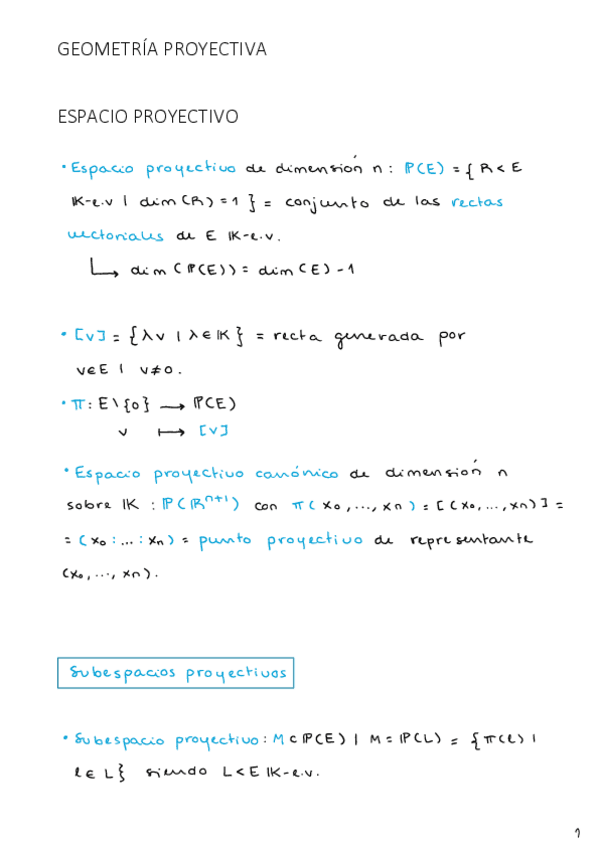 GEOMETRÍA PROYECTIVA
ESPACIO PROYECTIVO
• Espacio proyectivo de dimensión n: ℙ(E) = { R < E
𝕂-e.v | dim(R) = 1 } = conjunto de las rectas
vectoriales de E 𝕂-e.v.
↳ dim(ℙ(E)) = dim(E) - 1
• [v] = { λv | λ ∈ 𝕂 } = recta generada por
v ∈ E | v ≠ 0.
• π: E \ {0} → ℙ(E)
v ↦ [v]
• Espacio proyectivo canónico de dimensión n
sobre 𝕂 : ℙ(ℝⁿ⁺¹) con π(x₀, ..., xₙ) = [(x₀, ..., xₙ)] =
= (x₀ : ... : xₙ) = punto proyectivo de representante
(x₀, ..., xₙ).
Subespacios proyectivos
• Subespacio proyectivo: M ⊂ ℙ(E) | M = ℙ(L) = { π(l) |
l ∈ L } siendo L < E 𝕂-e.v.
1